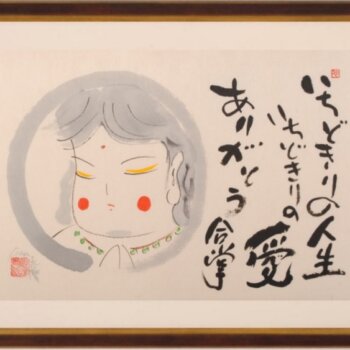 いちどきりの人生
いちどきりの
愛
ありがとう
合掌